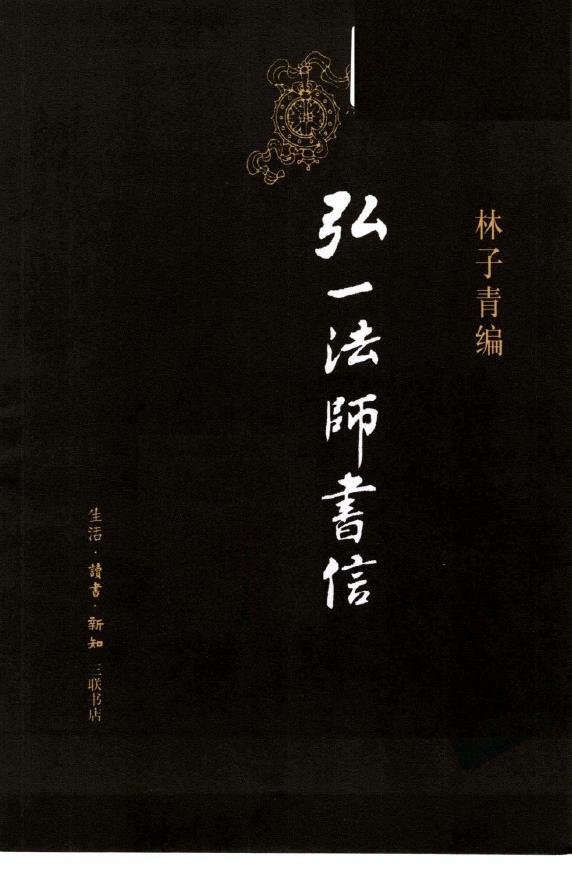 林子青编
弘一法師書信
生活·讀書·新知 三联书店